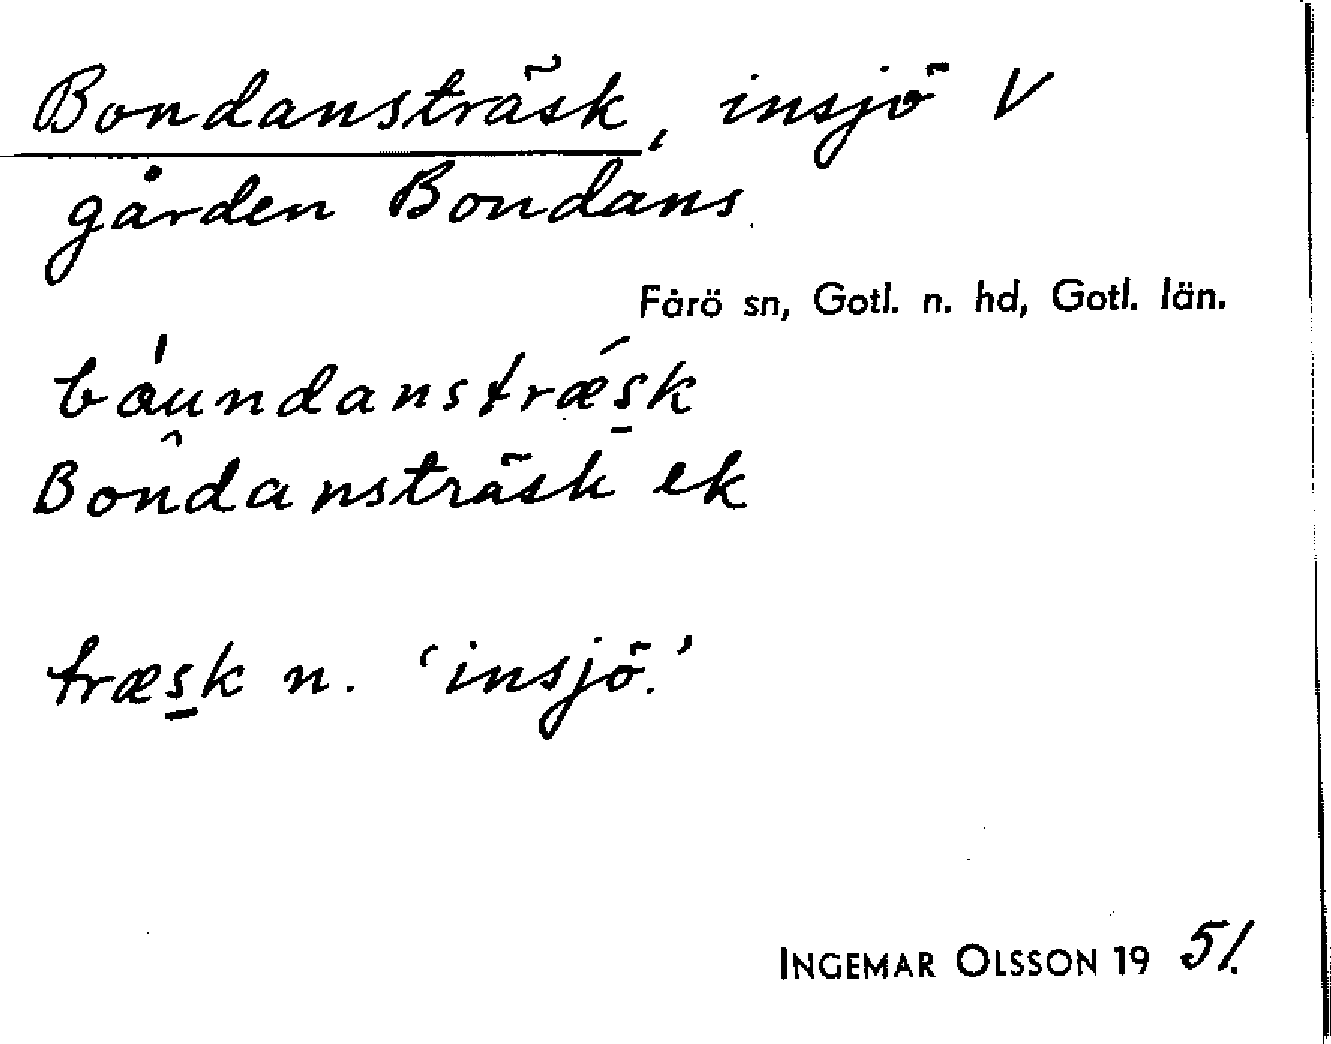 Bondansträsk, insjö V
gården Bondans.
Fårö sn, Gotl. n. hd, Gotl. län.
bá̍undanstrǽs̱k
Bondansträsk ek
træs̱k n. ‘insjö.’
INGEMAR OLSSON 1951.